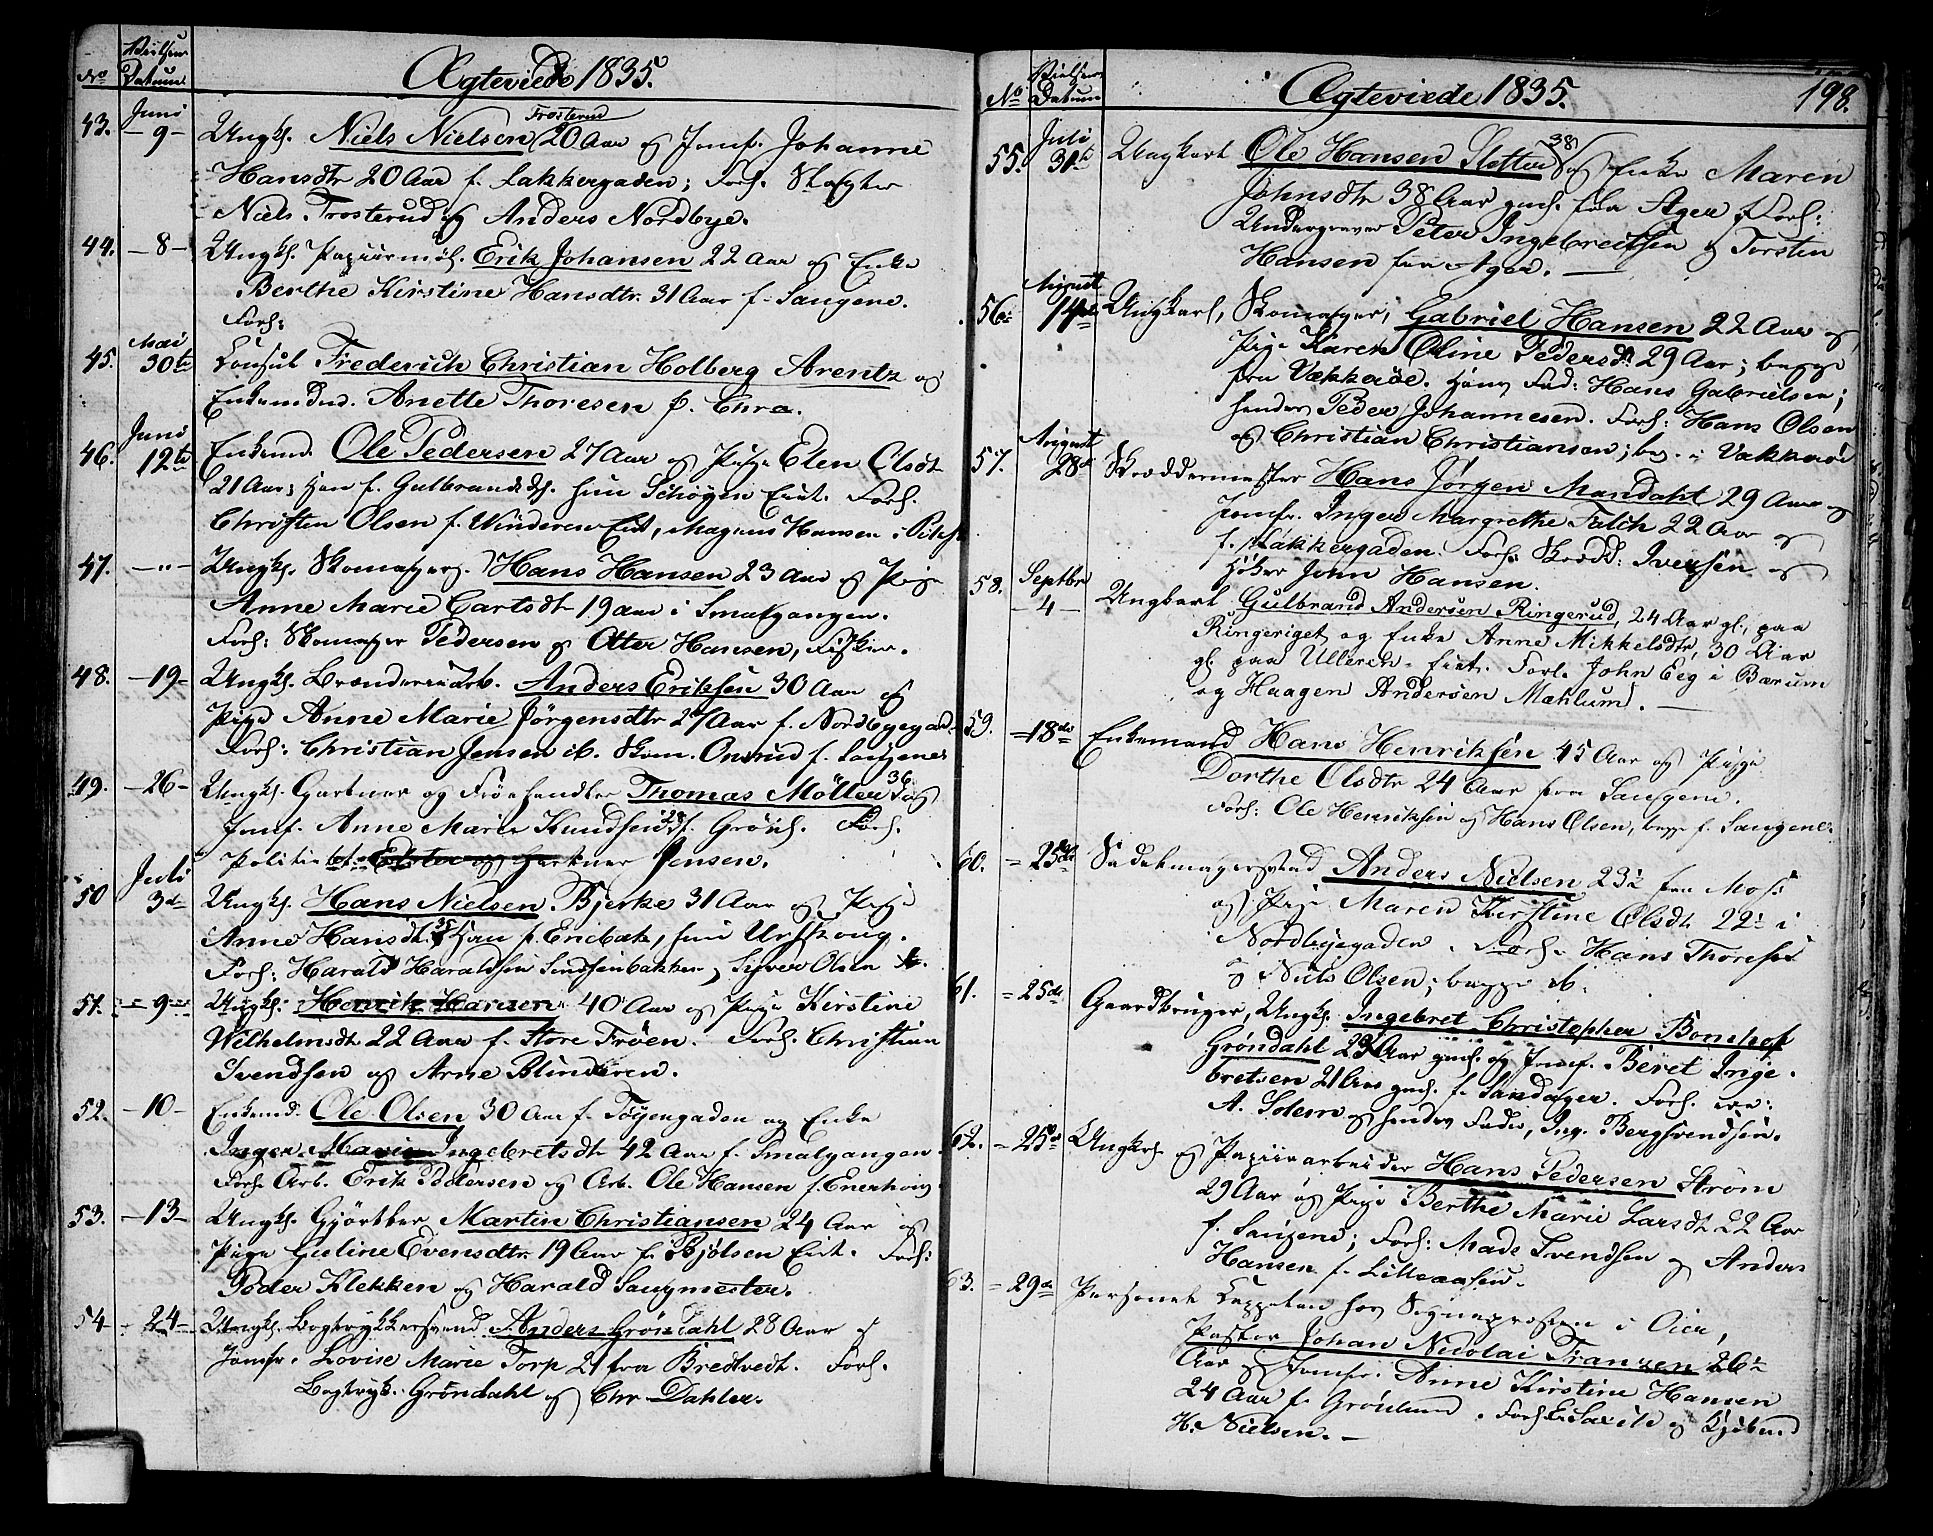 No
Vielsens Datum
Ægteviede 1835.
43.
Juni
-9-
Ungk. Niels Nielsen Trosterud 20 Aar og Jomf. Johanne
Hansdtr 20 Aar f. Lakkergaden; Forl. Skafgter
Niels Trosterud og Anders Nordbye.
44.
-8-
Ungk. Papiirmøl. Erik Johansen 22 Aar og Enke
Berthe Kirstine Hansdtr. 31 Aar f. Saugene.
Forl:
45.
Mai
30te
Consul Frederich Christian Holberg Arentz og
Enkemdm. Anette Thoresen f. Chra.
46.
Juni
12te
Enkemd. Ole Pedersen 27 Aar og Pige Elen Olsdt
21 Aar; Han f. Gulbrands hun Schøyen Eiet. Forl.
Christen Olsen f. Winderen Eiet, Magnus Hansen i
47.
-"-
Ungk. Skomagers. Hans Hansen 23 Aar og Pige
Anne Marie Carlsdtr 19 aar i Smalgangen.
Forl: Skomager Pedersen og Otter Hansen, Fisker.
48.
-19-
Ungk. Brænderiarb. Anders Eriksen 30 Aar og
Pige Anne Marie Jørgensdtr 27 Aar f. Nordbyegad.
Forl: Christian Jensen ib. Skom. Onsrud f. Saugene
49.
-26-
Ungk. Gartner og Frøehandler Thomas Møller 36 og
Jomf. Anne Marie Knudsen 28 f. Grønl. Forl.
Politiebet. Jensen.
50
Juli
3die
Ungk. Hans Nielsen Bjerke 31 Aar og Pige
Anne Hansdt. 35 Han f. Enebak, hun Urskoug.
Forl: Harald Haraldsen Enesenbakken, Syver Olsen ib.
51.
-9-
Ungk: Henrik Hansen 40 Aar og Pige Kirstine
Wilhelmsdt 22 Aar f. Store Frøen. Forl. Christian
Svendsen og Arne Blinderen.
52.
-10-
Enkemd. Ole Olsen 30 Aar f. Tøyengaden og Enke
Inger Marie Ingebretsdt 42 Aar f. Smalgangen.
Forl. Arb. Erik Pedersen og Arb. Ole Hansen f. Enerhoug
53.
-13-
Ungk. Gjørtler Martin Christiansen 24 Aar og
Pige Guline Evensdtr. 19 Aar fr. Bjølsen Eiet. Forl:
Peder Klekken og Harald Saugmester.
54
-24-
Ungk. Bogtrykkersvend Anders Grøndahl 28 Aar og
Jomfr. Lovise Marie Torp 21 fra Bredtvedt. Forl.
Bogtryk. Grøndahl og Chr Dahler.
No
Vielsens Datum
Ægteviede 1835.
198.
55.
Juli
31te
Ungkarl Ole Hansen Slotter 38 og Enke Maren
Johnsdtr 38 Aar gml. fra Ager Forl:
Undergraver Peter Ingebreitsen og Torsten
Hansen fra Ager.
56.
August
14de
Ungkarl, Skomager, Gabriel Hansen 22 Aar og
Pige Karen Oline Pedersdt 29 Aar; begge
fra Vækkerøe. Hans Fad: Hans Gabrielsen;
hendes Peder Johannesen. Forl: Hans Olsen
og Christian Christiansen; beg. i Vækkerøe
57.
August
28de
Skreddermester Hans Jørgen Mandahl 29 Aar og
Jomfr. Inger Margrethe Falch 22 Aar
f. Lakkergaden. Forl: Skredd: Iversen og
Høker Jonn Hansen.
58.
Septbr
-4-
Ungkarl Gulbrand Andersen Ringerud, 24 Aar gl, paa
Ringeriget og Enke Anne Mikkelsdtr, 30 Aar
gl. paa Ullern-Eiet. Forl. John Eeg i Bærum
og Haagen Andersen Mæhlum.
59.
-18de
Enkemand Hans Henriksen 45 Aar og Pige
Dorthe Olsdtr 24 Aar fra Saugene.
Forl: Ole Henriksen og Hans Olsen, begge f. Saugene.
60.
=25de
Sadelmagersvend Anders Nielsen 23 fra Moss
og Pige Maren Kirstine Olsdt 22 i
Nordbyegaden. Forl. Hans Thoresen
og Niels Olsen; begge ib.
61.
=25de
Gaardbruger, Ungk. Ingebret Christopher Bomhof
Grøndahl 23 Aar gml. og Jomf. Beret Inge-
bretsen 21 Aar gml. f. Sandager. Forl. ere:
A. Solem og hendes Fader, Ing. Bergsvendsen.
62.
-25de
Ungkarl og Papiirarbeider Hans Pedersen Strøm
29 Aar og Pige Berthe Marie Larsdt 22 Aar
f. Saugene; Forl: Mads Svendsen og Anders
Hansen f. Lilleaasen.
63.
=29de
Personel Cappelan hos Sogneprosten i Eier,
Pastor Johan Nicolai Franzen 26
Aar og Jomfr. Anne Kirstine Hansen
24 Aar f. Grønlund. Forl. E. Saxild og
H. Nielsen.-